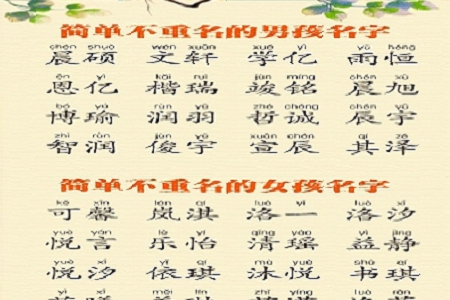 简单不重名的男孩名字
chén shuò wén xuān xué yì yǔ héng
晨硕 文轩 学亿 雨恒
ēn yì kǎi ruì jùn míng chén xù
恩亿 楷瑞 竣铭 晨旭
bó yú rùn yǔ zhé chéng chén yǔ
博瑜 润羽 哲诚 辰宇
zhì rùn jùn yǔ xuān chén qí zé
智润 俊宇 宣辰 其泽
简单不重名的女孩名字
kě xīn lán qí luò yī luò xī
可馨 岚淇 洛一 洛汐
yuè yán lè yí qīng yáo yì jìng
悦言 乐怡 清瑶 益静
yuè xī yī qí mù yuè shū qí
悦汐 依琪 沐悦 书琪